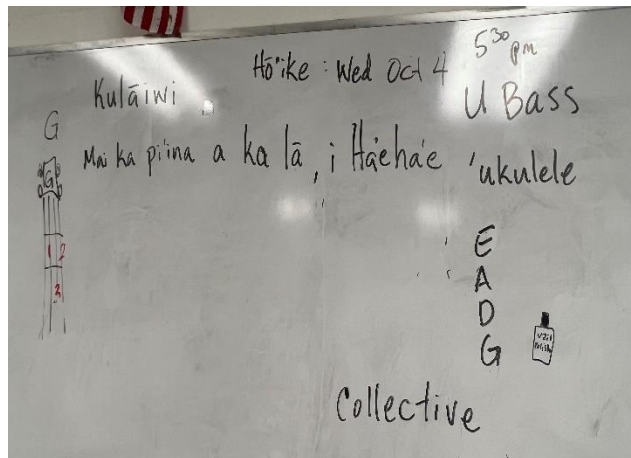 Hō'ike : Wed Oct 4 5³⁰ pm
Kulāiwi
U Bass
G
Mai ka pi'ina a ka lā, i Ha'eha'e
'ukulele
G
1 2
3
E
A
D
G
Collective